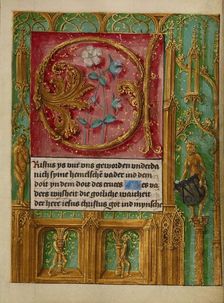 Cristus ys vur vns geworden vnderda
nich synē hemelschē vader vnd dem
doit yn dem doit des cruces es va
ders wisheit die gotliche waicheit
der here iesus christus got vnd mynsche